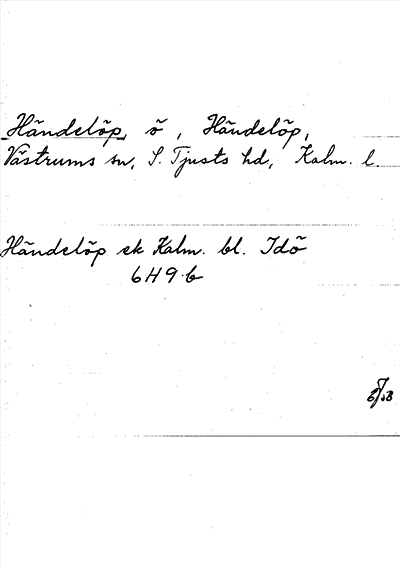 Händelöp, ö, Händelöp,
Västrums sn, S. Tjusts hd, Kalm. l.
Händelöp ek Kalm. bl. Idö
6H9b